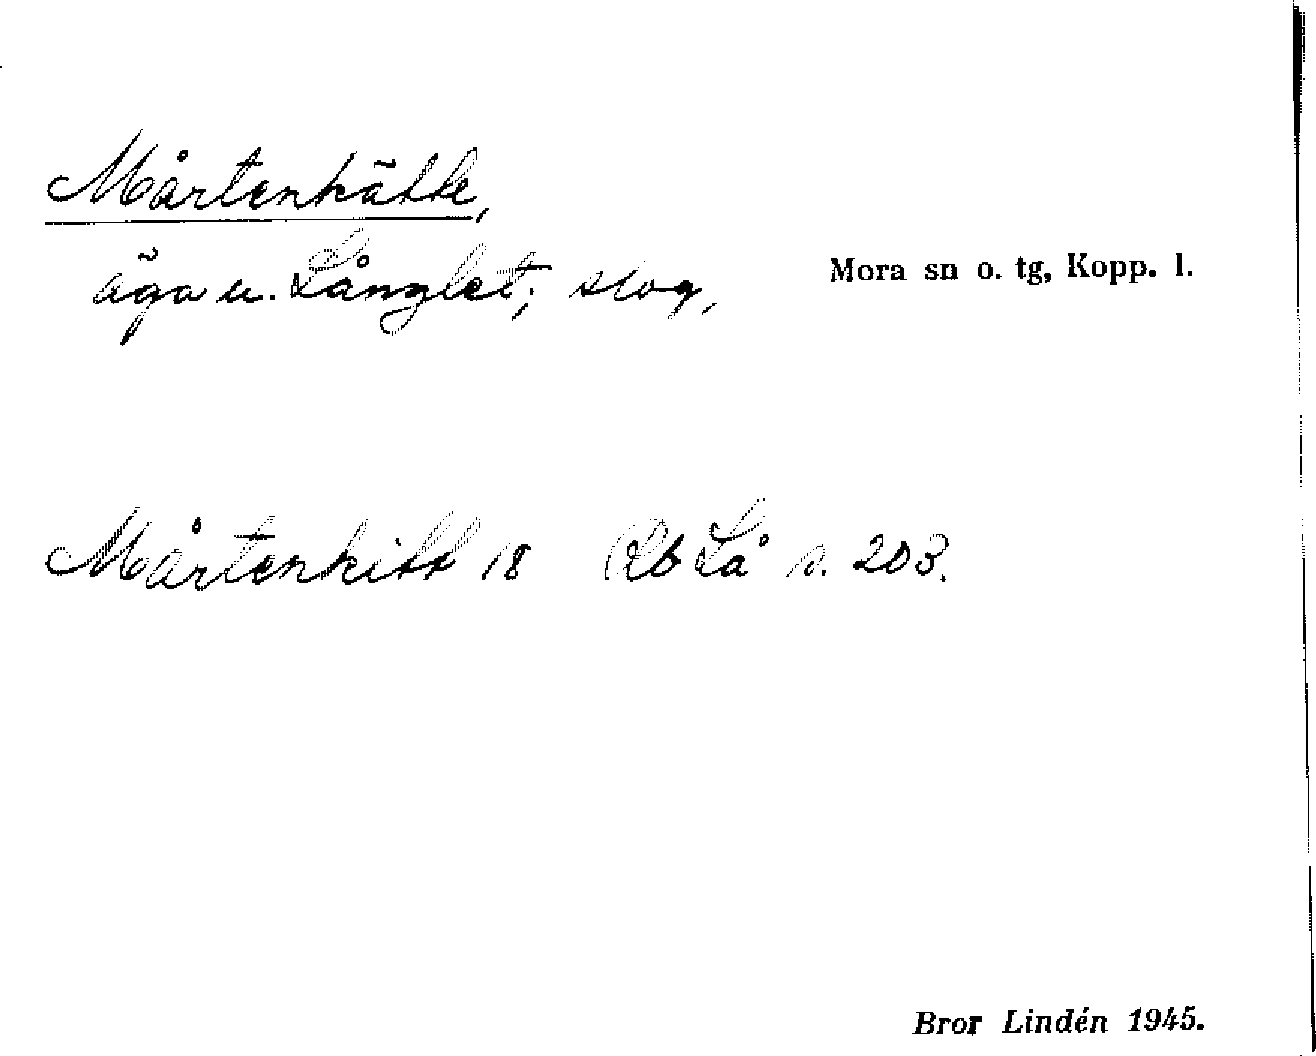 Mårtenkätte,
äga u. Långlet; slog,
Mora sn o. tg, Kopp. l.
Mårtenkitt 18 Rb Lå s. 203.
Bror Lindén 1945.